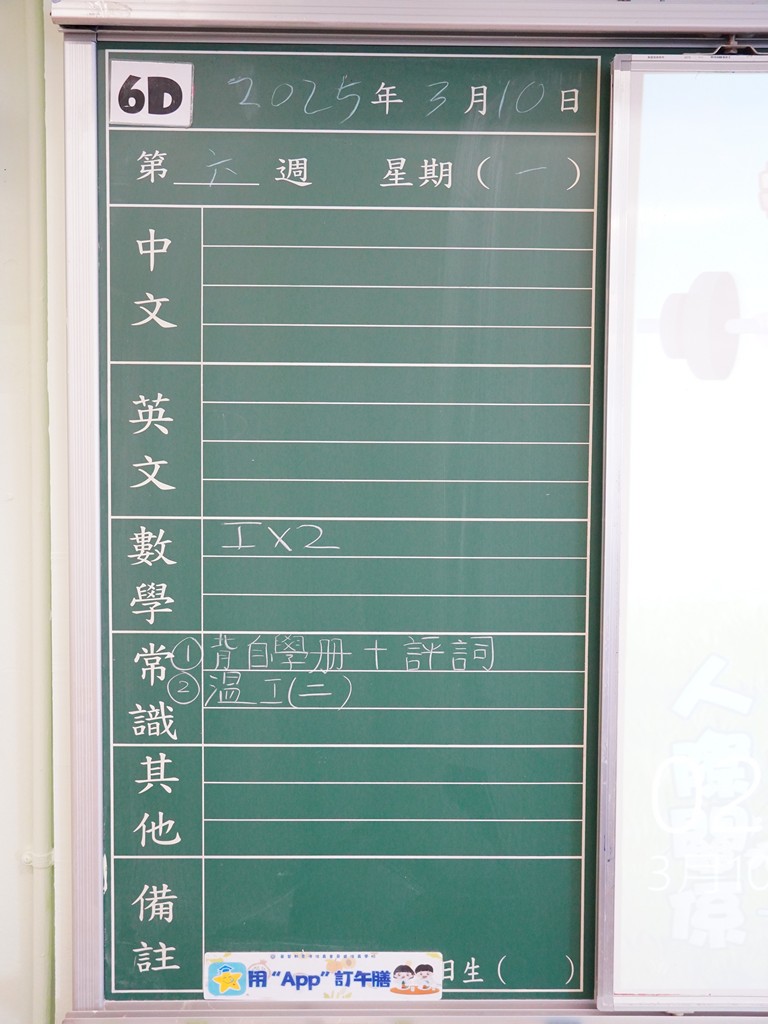 6D 2025年3月10日
第六週 星期(一)
中文
英文
數學 工X2
常識 ①背自學册+評詞
②溫工(二)
其他
備註
用“App”訂午膳
日生( )
人際關係
3月10